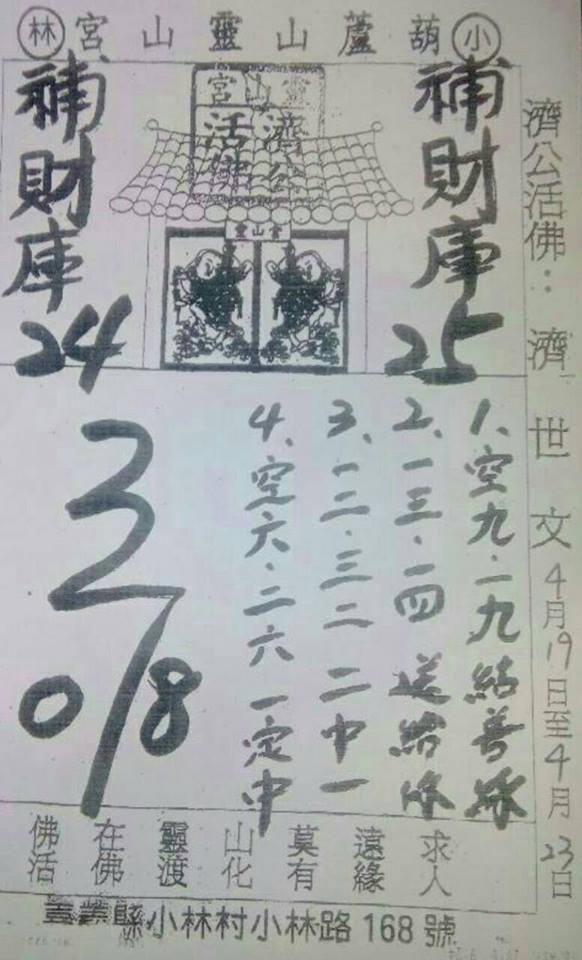 小葫蘆山靈山宮林
濟公活佛：濟世文4月19日至4月23日
補財庫
25
靈山宮
濟公
活佛
補財庫
24
1、空九．一九結善緣
2、一三．一四送給你
3、一二．三二 二中一
4、空六．二六 一定中
3
0/8
佛在靈山莫遠求
活佛渡化有緣人
小林村小林路168號